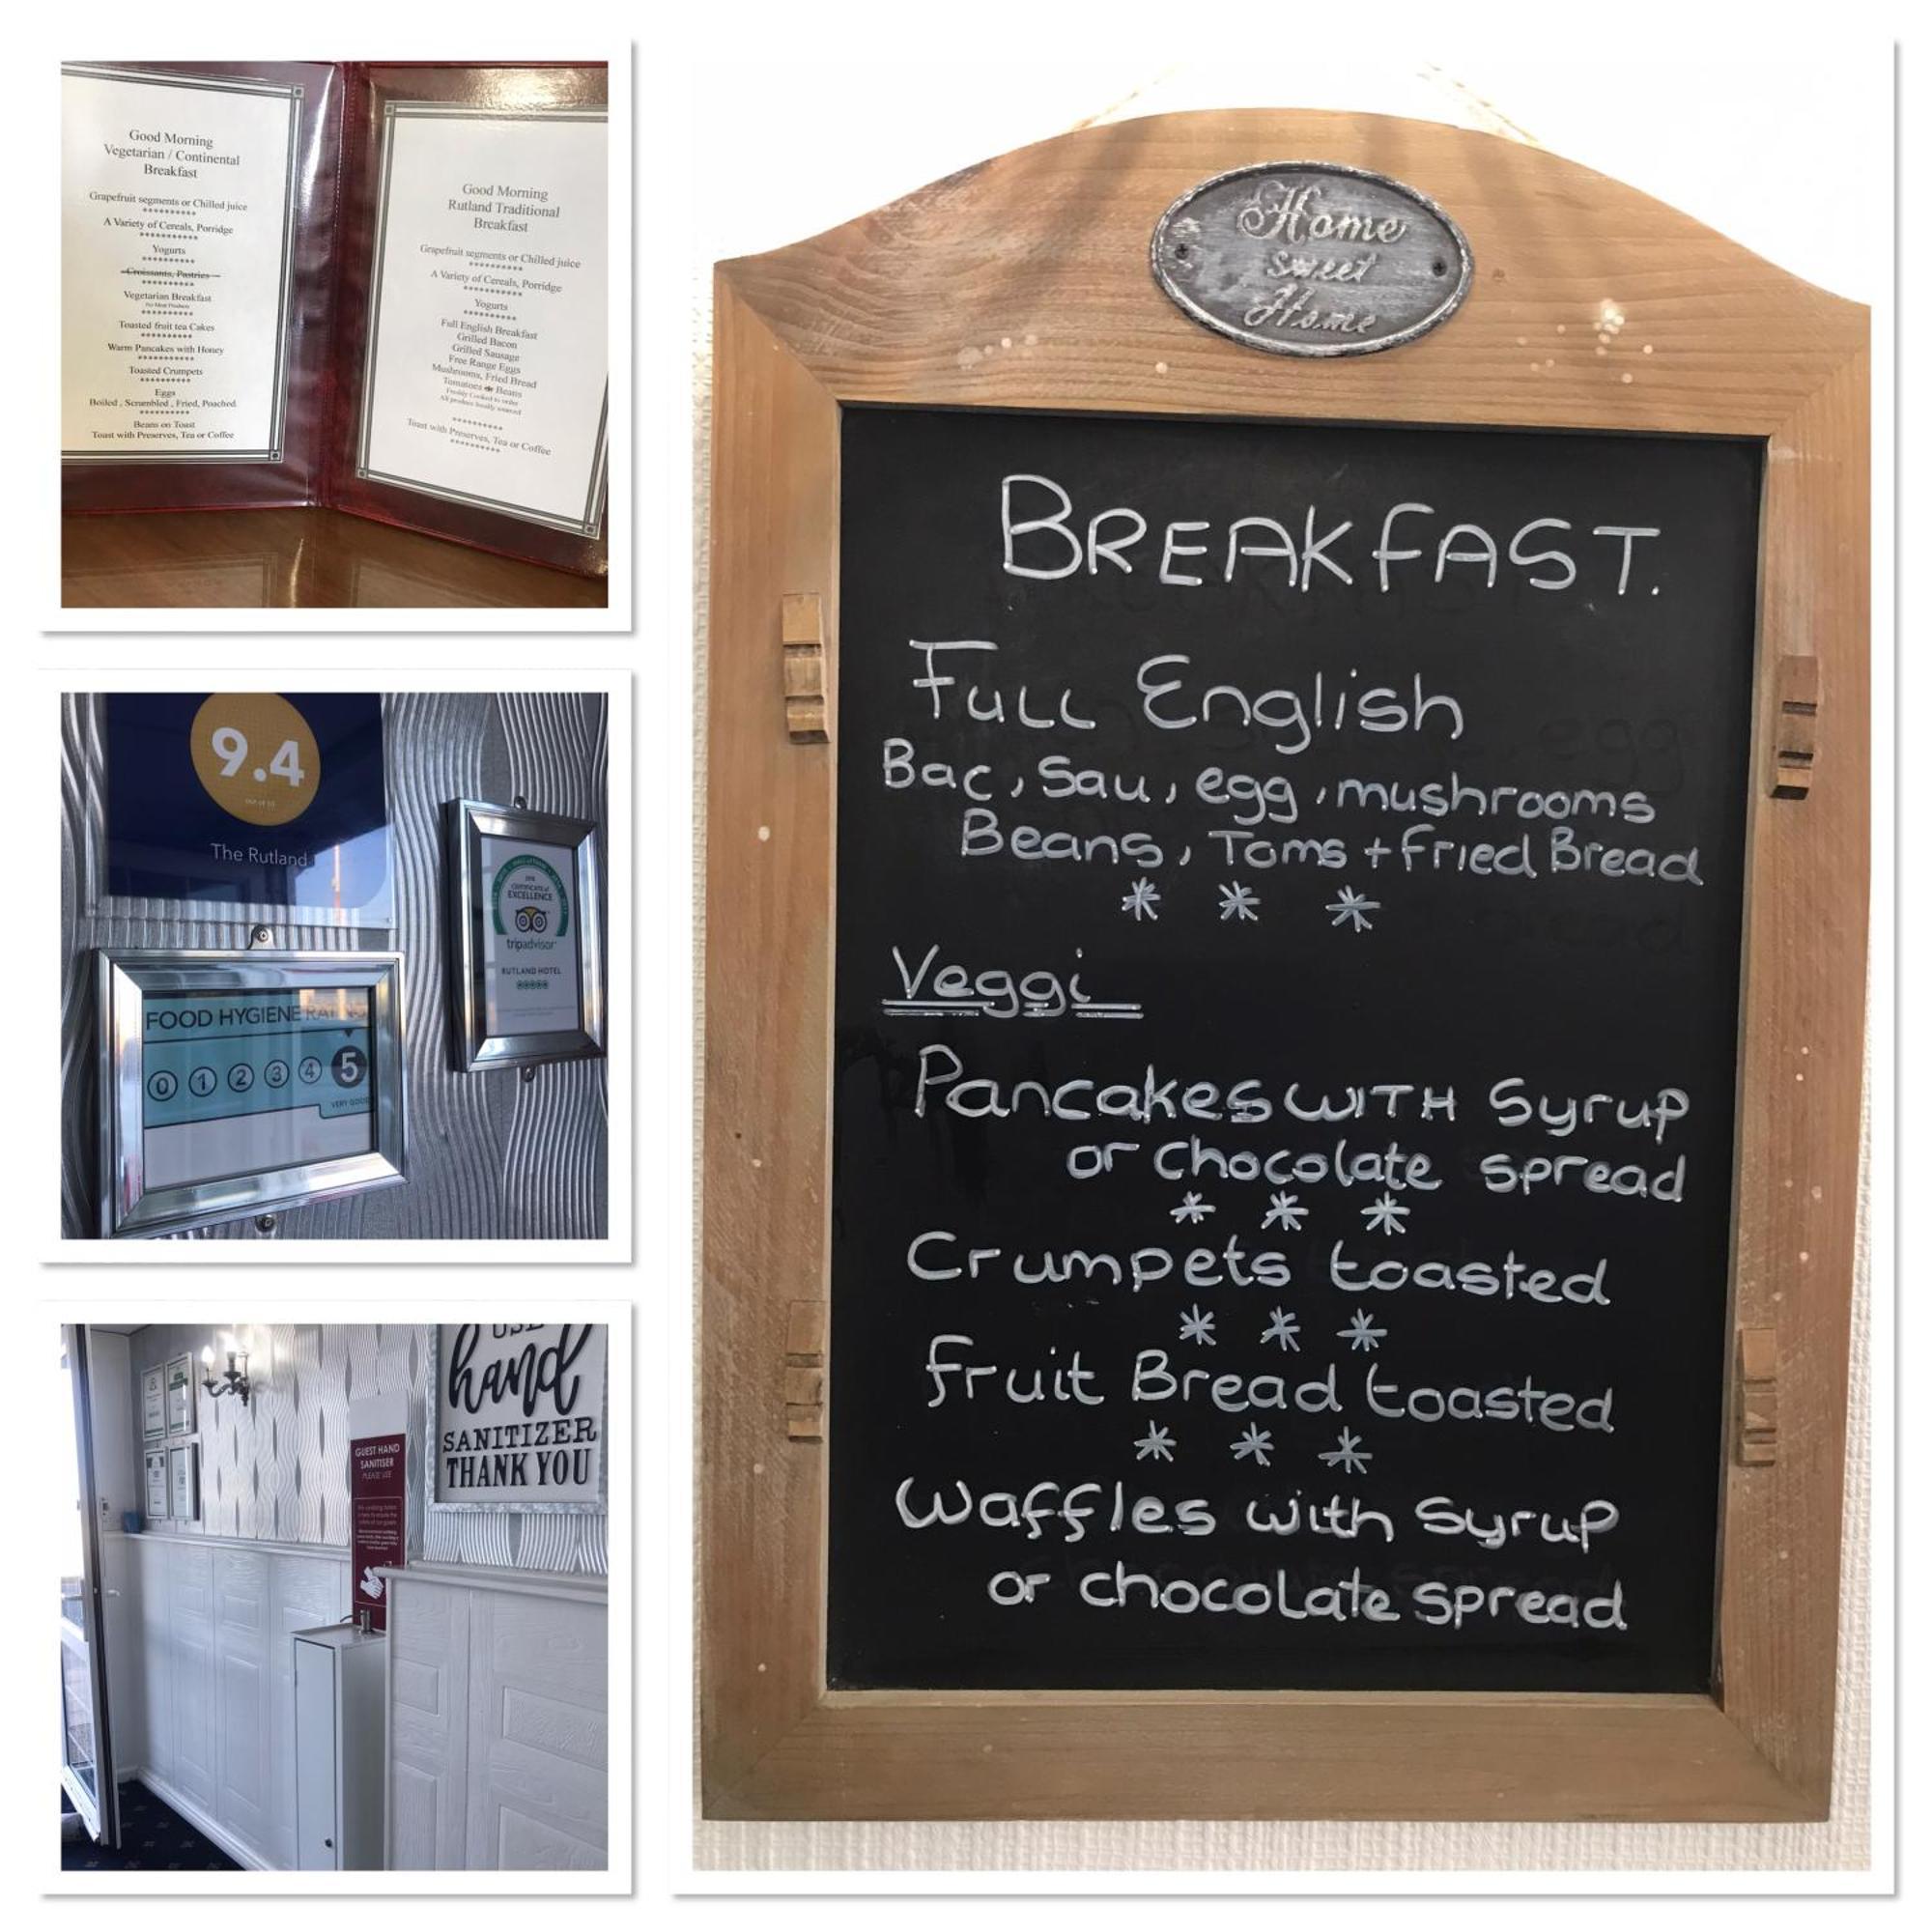 Good Morning
Vegetarian / Continental
Breakfast
Grapefruit segments or Chilled juice
**********
A Variety of Cereals, Porridge
***********
Yogurts
**********
Croissants, Pastries
**********
Vegetarian Breakfast
No Meat Products
**********
Toasted fruit tea Cakes
**********
Warm Pancakes with Honey
***********
Toasted Crumpets
**********
Eggs
Boiled , Scrambled , Fried, Poached.
**********
Beans on Toast
Toast with Preserves, Tea or Coffee
Good Morning
Rutland Traditional
Breakfast
Grapefruit segments or Chilled juice
**********
A Variety of Cereals, Porridge
***********
Yogurts
**********
Full English Breakfast
Grilled Bacon
Grilled Sausage
Free Range Eggs
Mushrooms, Fried Bread
Tomatoes & Beans
Freshly Cooked to order
All produce locally sourced
**********
Toast with Preserves, Tea or Coffee
**********
9.4
The Rutland
CERTIFICATE of
EXCELLENCE
tripadvisor
RUTLAND HOTEL
FOOD HYGIENE RATING
0 1 2 3 4 5
VERY GOOD
USE
hand
SANITIZER
THANK YOU
GUEST HAND
SANITISER
PLEASE USE
Home
Sweet
Home
BREAKFAST.
Full English
Bac, Sau, egg, mushrooms
Beans, Toms + Fried Bread
* * *
Veggi
Pancakes WITH Syrup
or chocolate spread
* * *
Crumpets toasted
* * *
Fruit Bread toasted
* * *
Waffles with Syrup
or chocolate spread